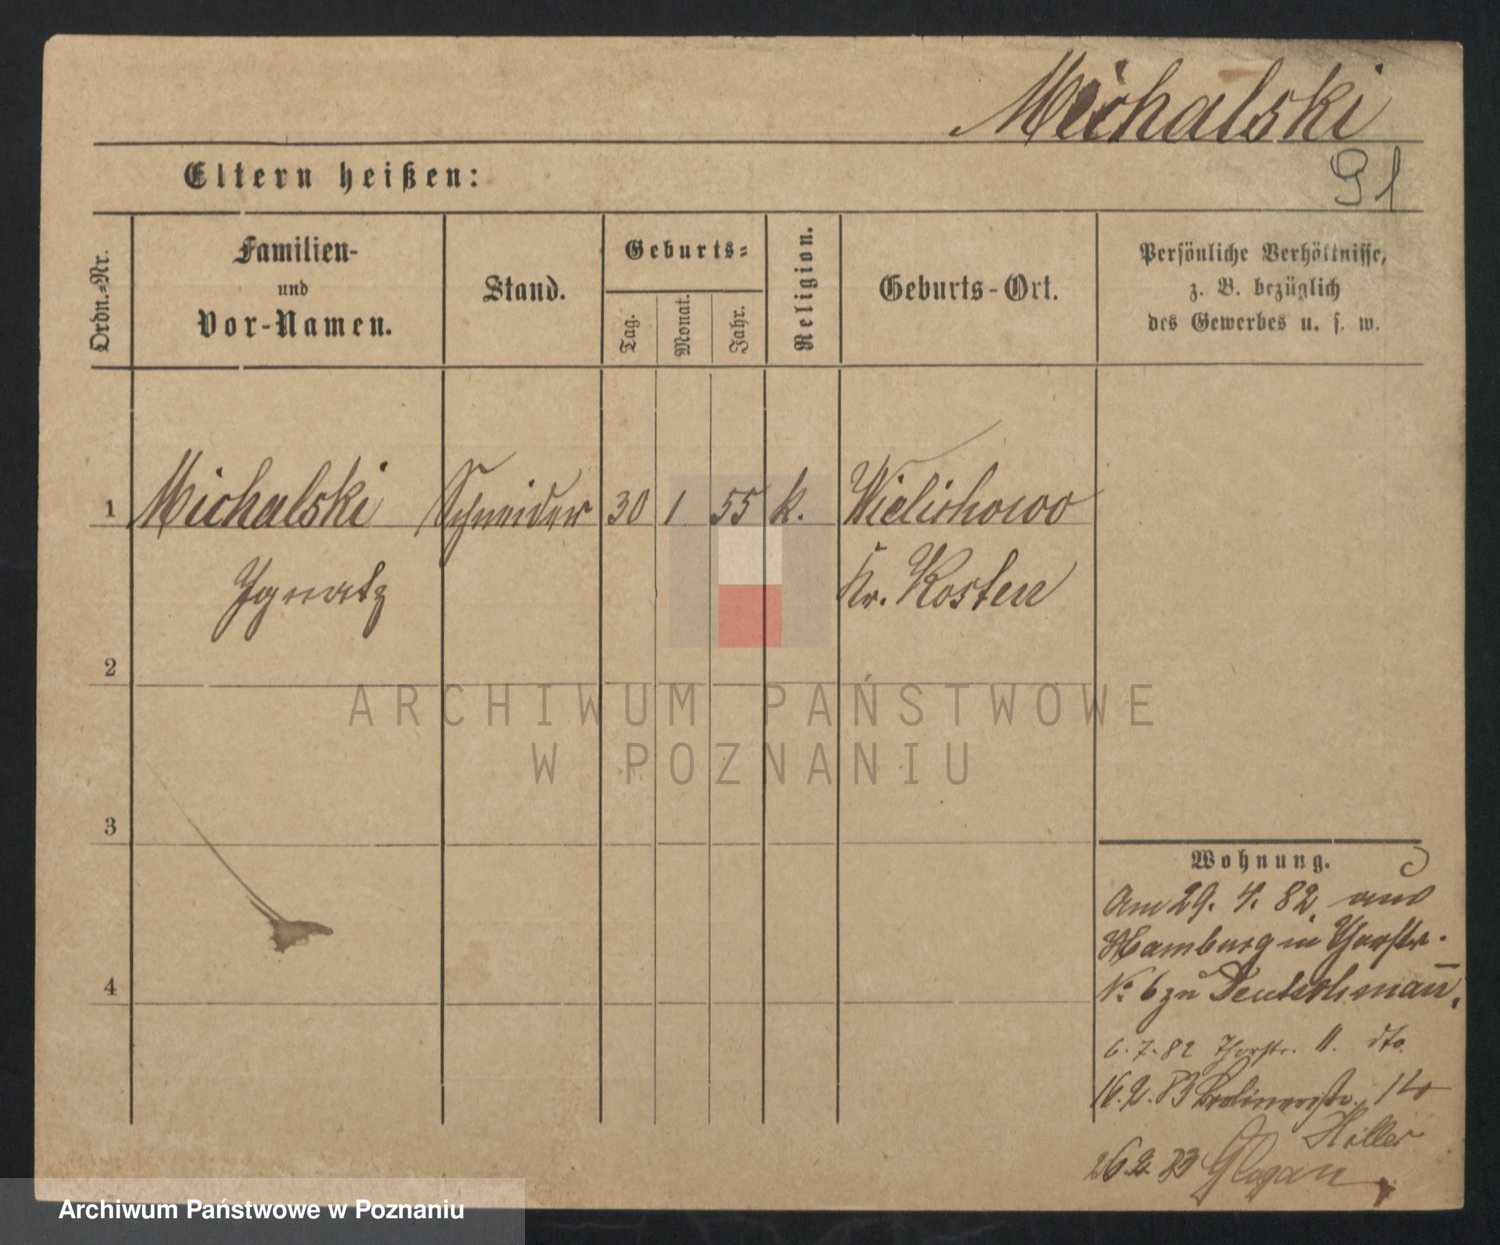 Michalski
91
Eltern heißen:
Ordn.-Nr.
Familien-
und
Vor-Namen.
Stand.
Geburts-
Tag.
Monat.
Jahr.
Religion.
Geburts-Ort.
Persönliche Verhältnisse,
z. B. bezüglich
des Gewerbes u. s. w.
1 Michalski Schneider 30 1 55 k. Wielichowo
Ignatz Kr. Kosten
2
ARCHIWUM PAŃSTWOWE
W POZNANIU
3
Wohnung.
Am 29. 4. 82 aus
Hamburg in Thorstr.
No 6 zu Deutschman̄.
6.7.82 Thorstr. 11. dto.
4
16.2.83 Berlinerstr. 14
Hiller
26.2.83 Glogau
Archiwum Państwowe w Poznaniu